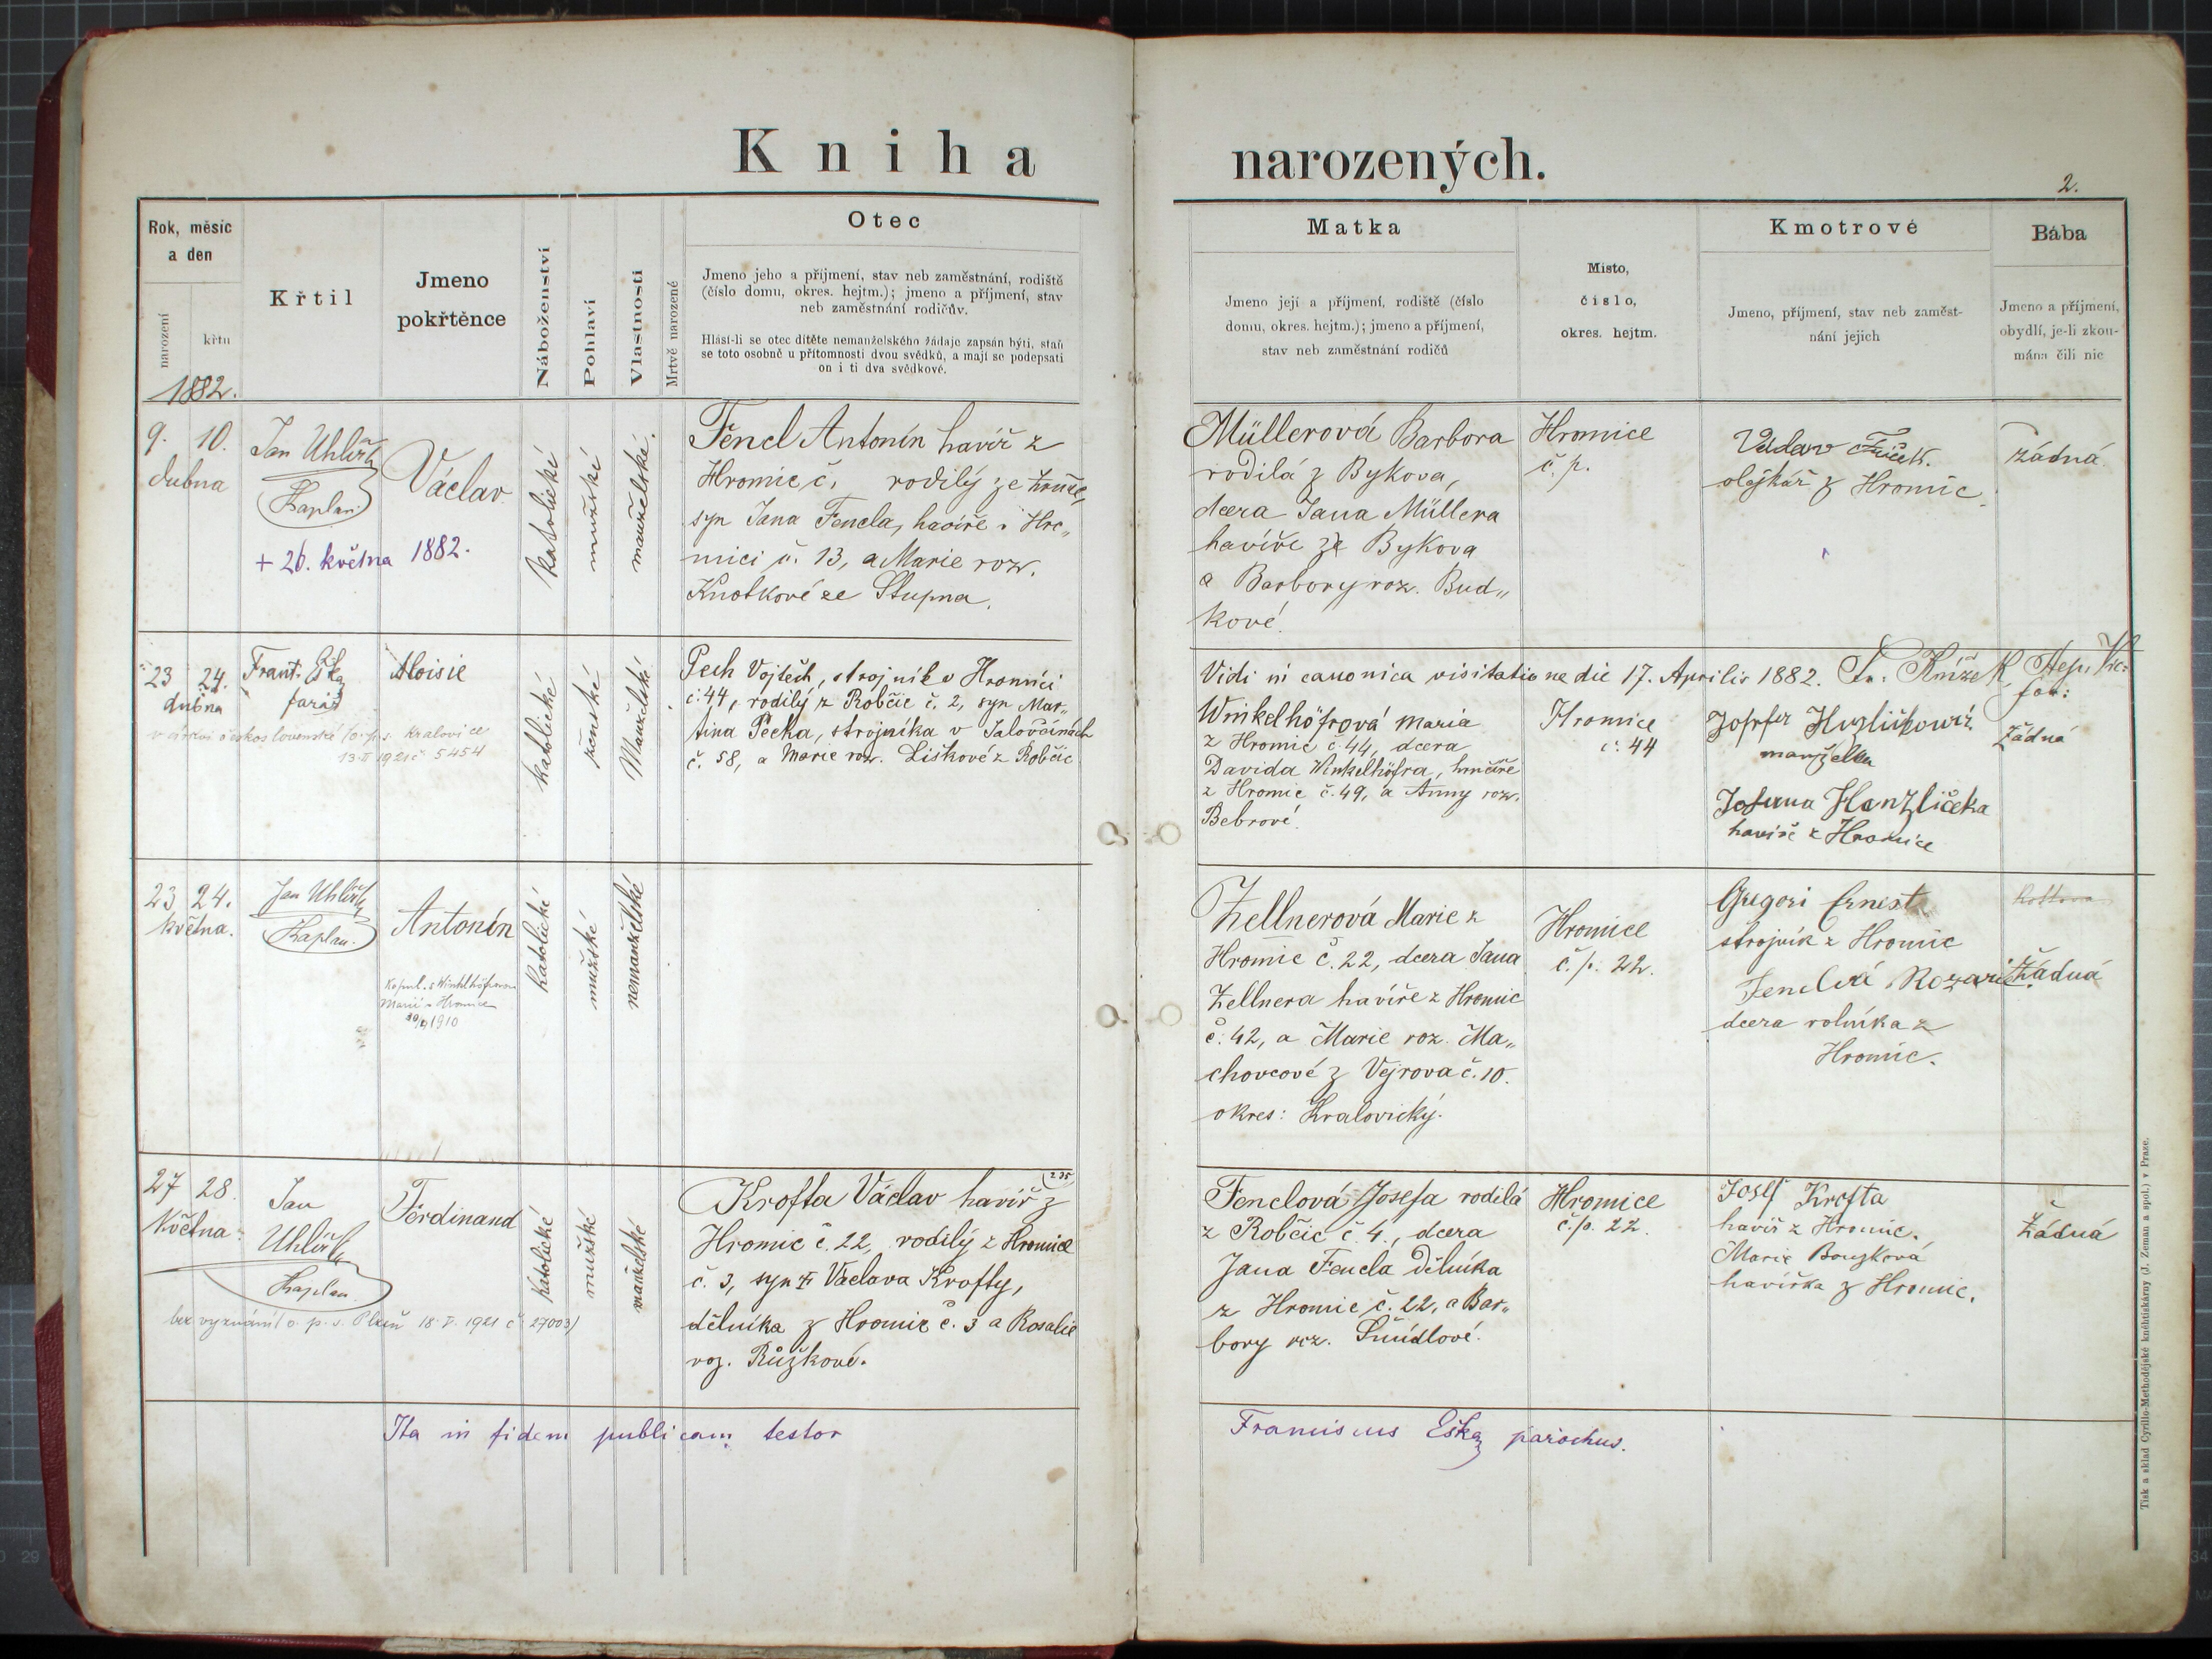 Kniha narozených.
2.
Rok, měsíc
a den
narození
křtu
Křtil
Jmeno
pokřtěnce
Náboženství
Pohlaví
Vlastnosti
Mrtvě narozené
Otec
Jmeno jeho a příjmení, stav neb zaměstnání, rodiště
(číslo domu, okres. hejtm.); jmeno a příjmení, stav
neb zaměstnání rodičův.
Hlásí-li se otec dítěte nemanželského žádaje zapsán býti, staň
se toto osobně u přítomnosti dvou svědků, a mají se podepsati
on i ti dva svědkové.
Matka
Jmeno její a příjmení, rodiště (číslo
domu, okres. hejtm.); jmeno a příjmení,
stav neb zaměstnání rodičů
Místo,
číslo,
okres. hejtm.
Kmotrové
Jmeno, příjmení, stav neb zaměst-
nání jejich
Bába
Jmeno a příjmení,
obydlí, je-li zkou-
mána čili nic
1882.
9. 10.
dubna
Jan Uhlíř
Kaplan
Václav
+ 26. května 1882.
katolické
mužské
manželské.
Fencl Antonín havíř z
Hromic, č. rodilý ze
syn Jana Fencla, havíře v Hro„
mici č. 13, a Marie roz.
Knotkové ze Stupna.
Müllerová Barbora
rodilá z Bykova,
dcera Jana Müllera
havíře ze Bykova
a Barbory roz. Bud„
kové.
Hromice
č. p.
Václav
olejkář z Hromic.
žádná.
23 24.
dubna
Frant. Eška
farář
Aloisie
v církvi československé (o. p. s. Kralovice
13.II 1921 č 5454
katolické
ženské
Manželské
Pech Vojtěch, strojník v Hromici
č. 44, rodilý z Robčic č. 2, syn Mar„
tina Pecha, strojníka v Jalovčinách
č. 58, a Marie roz. Liškové z Robčic
Vidi in canonica visitatione die 17. Aprilis 1882.
Winkelhöfrová Maria
z Hromic č. 44, dcera
Davida Winkelhöfra, hrnčíře
z Hromic č. 49, a Anny roz.
Bebrové.
Hromice
č. 44
manželka
Josefa Hanzlíčka
havíře z Hromice
žádná
23 24.
května.
Jan Uhlíř
Kaplan.
Antonín
Kopul. s Winkelhöfrovou
Marií z Hromice
1910
katolické
mužské
nemanželské
Zellnerová Marie z
Hromic č. 22, dcera Jana
Zellnera havíře z Hromic
č. 42, a Marie roz. Ma„
chovcové z Vejrova č. 10.
okres: Kralovický.
Hromice
č. p. 22.
Gregori Ernest
strojník z Hromic
Fenclová Rozarie
dcera rolníka z
Hromic.
Žádná
27 28.
Května.
Jan
Uhlíř
Kaplan
Ferdinand
bez vyznání (o. p. s. Plzeň 18.V. 1921 č 27003)
katolické
mužské
manželské
235
Krofta Václav havíř z
Hromic č. 22, rodilý z Hromice
č. 3, syn † Václava Krofty,
dělníka z Hromic č. 3 a Rosalie
roz. Růžkové.
Fenclová Josefa rodilá
z Robčic č. 4., dcera
Jana Fencla dělníka
z Hromic č. 22, a Bar„
bory roz. Šmídlové.
Hromice
č. p. 22.
Josef Krofta
havíř z Hromic.
Marie Bouzková
havířka z Hromic.
Žádná
Ita in fidem publicam testor
Franciscus Eška parochus.
Tisk a sklad Cyrillo-Methodějské knihtiskárny (J. Zeman a spol.) v Praze.